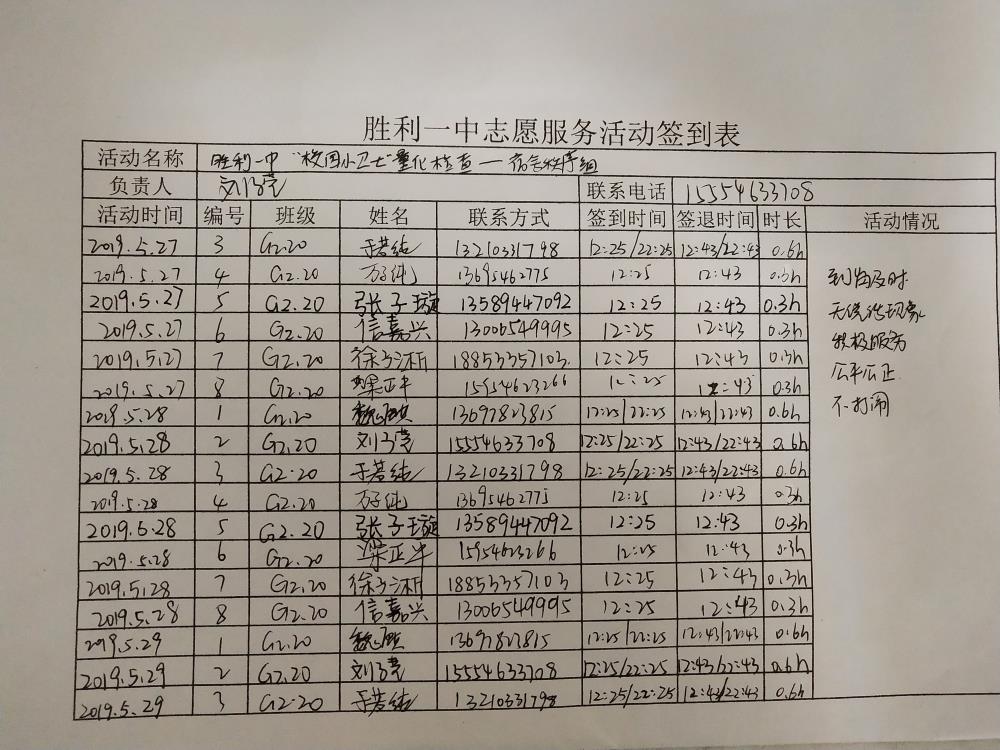 胜利一中志愿服务活动签到表
活动名称 胜利一中"校园小卫士"量化检查—宿舍秩序组
负责人 联系电话 15554633708
活动时间 编号 班级 姓名 联系方式 签到时间 签退时间 时长 活动情况
2019.5.27 3 G2.20 于若纯 13210331798 12:25/22:25 12:43/22:43 0.6h
2019.5.27 4 G2.20 13695462775 12:25 12:43 0.3h
2019.5.27 5 G2.20 张子璇 13589447092 12:25 12:43 0.3h
2019.5.27 6 G2.20 信嘉兴 13006549995 12:25 12:43 0.3h
2019.5.27 7 G2.20 18853357103 12:25 12:43 0.3h
2019.5.27 8 G2.20 15954623266 12:25 12:43 0.3h
2019.5.28 1 G2.20 13697823815 12:25/22:25 12:43/22:43 0.6h
2019.5.28 2 G2.20 15554633708 12:25/22:25 12:43/22:43 0.6h
2019.5.28 3 G2.20 于若纯 13210331798 12:25/22:25 12:43/22:43 0.6h
2019.5.28 4 G2.20 13695462775 12:25 12:43 0.3h
2019.5.28 5 G2.20 张子璇 13589447092 12:25 12:43 0.3h
2019.5.28 6 G2.20 15954623266 12:25 12:43 0.3h
2019.5.28 7 G2.20 18853357103 12:25 12:43 0.3h
2019.5.28 8 G2.20 信嘉兴 13006549995 12:25 12:43 0.3h
2019.5.29 1 G2.20 13697823815 12:25/22:25 12:43/22:43 0.6h
2019.5.29 2 G2.20 15554633708 12:25/22:25 12:43/22:43 0.6h
2019.5.29 3 G2.20 于若纯 13210331798 12:25/22:25 12:43/22:43 0.6h
到岗及时
无迟到现象
积极服务
公平公正
不打闹